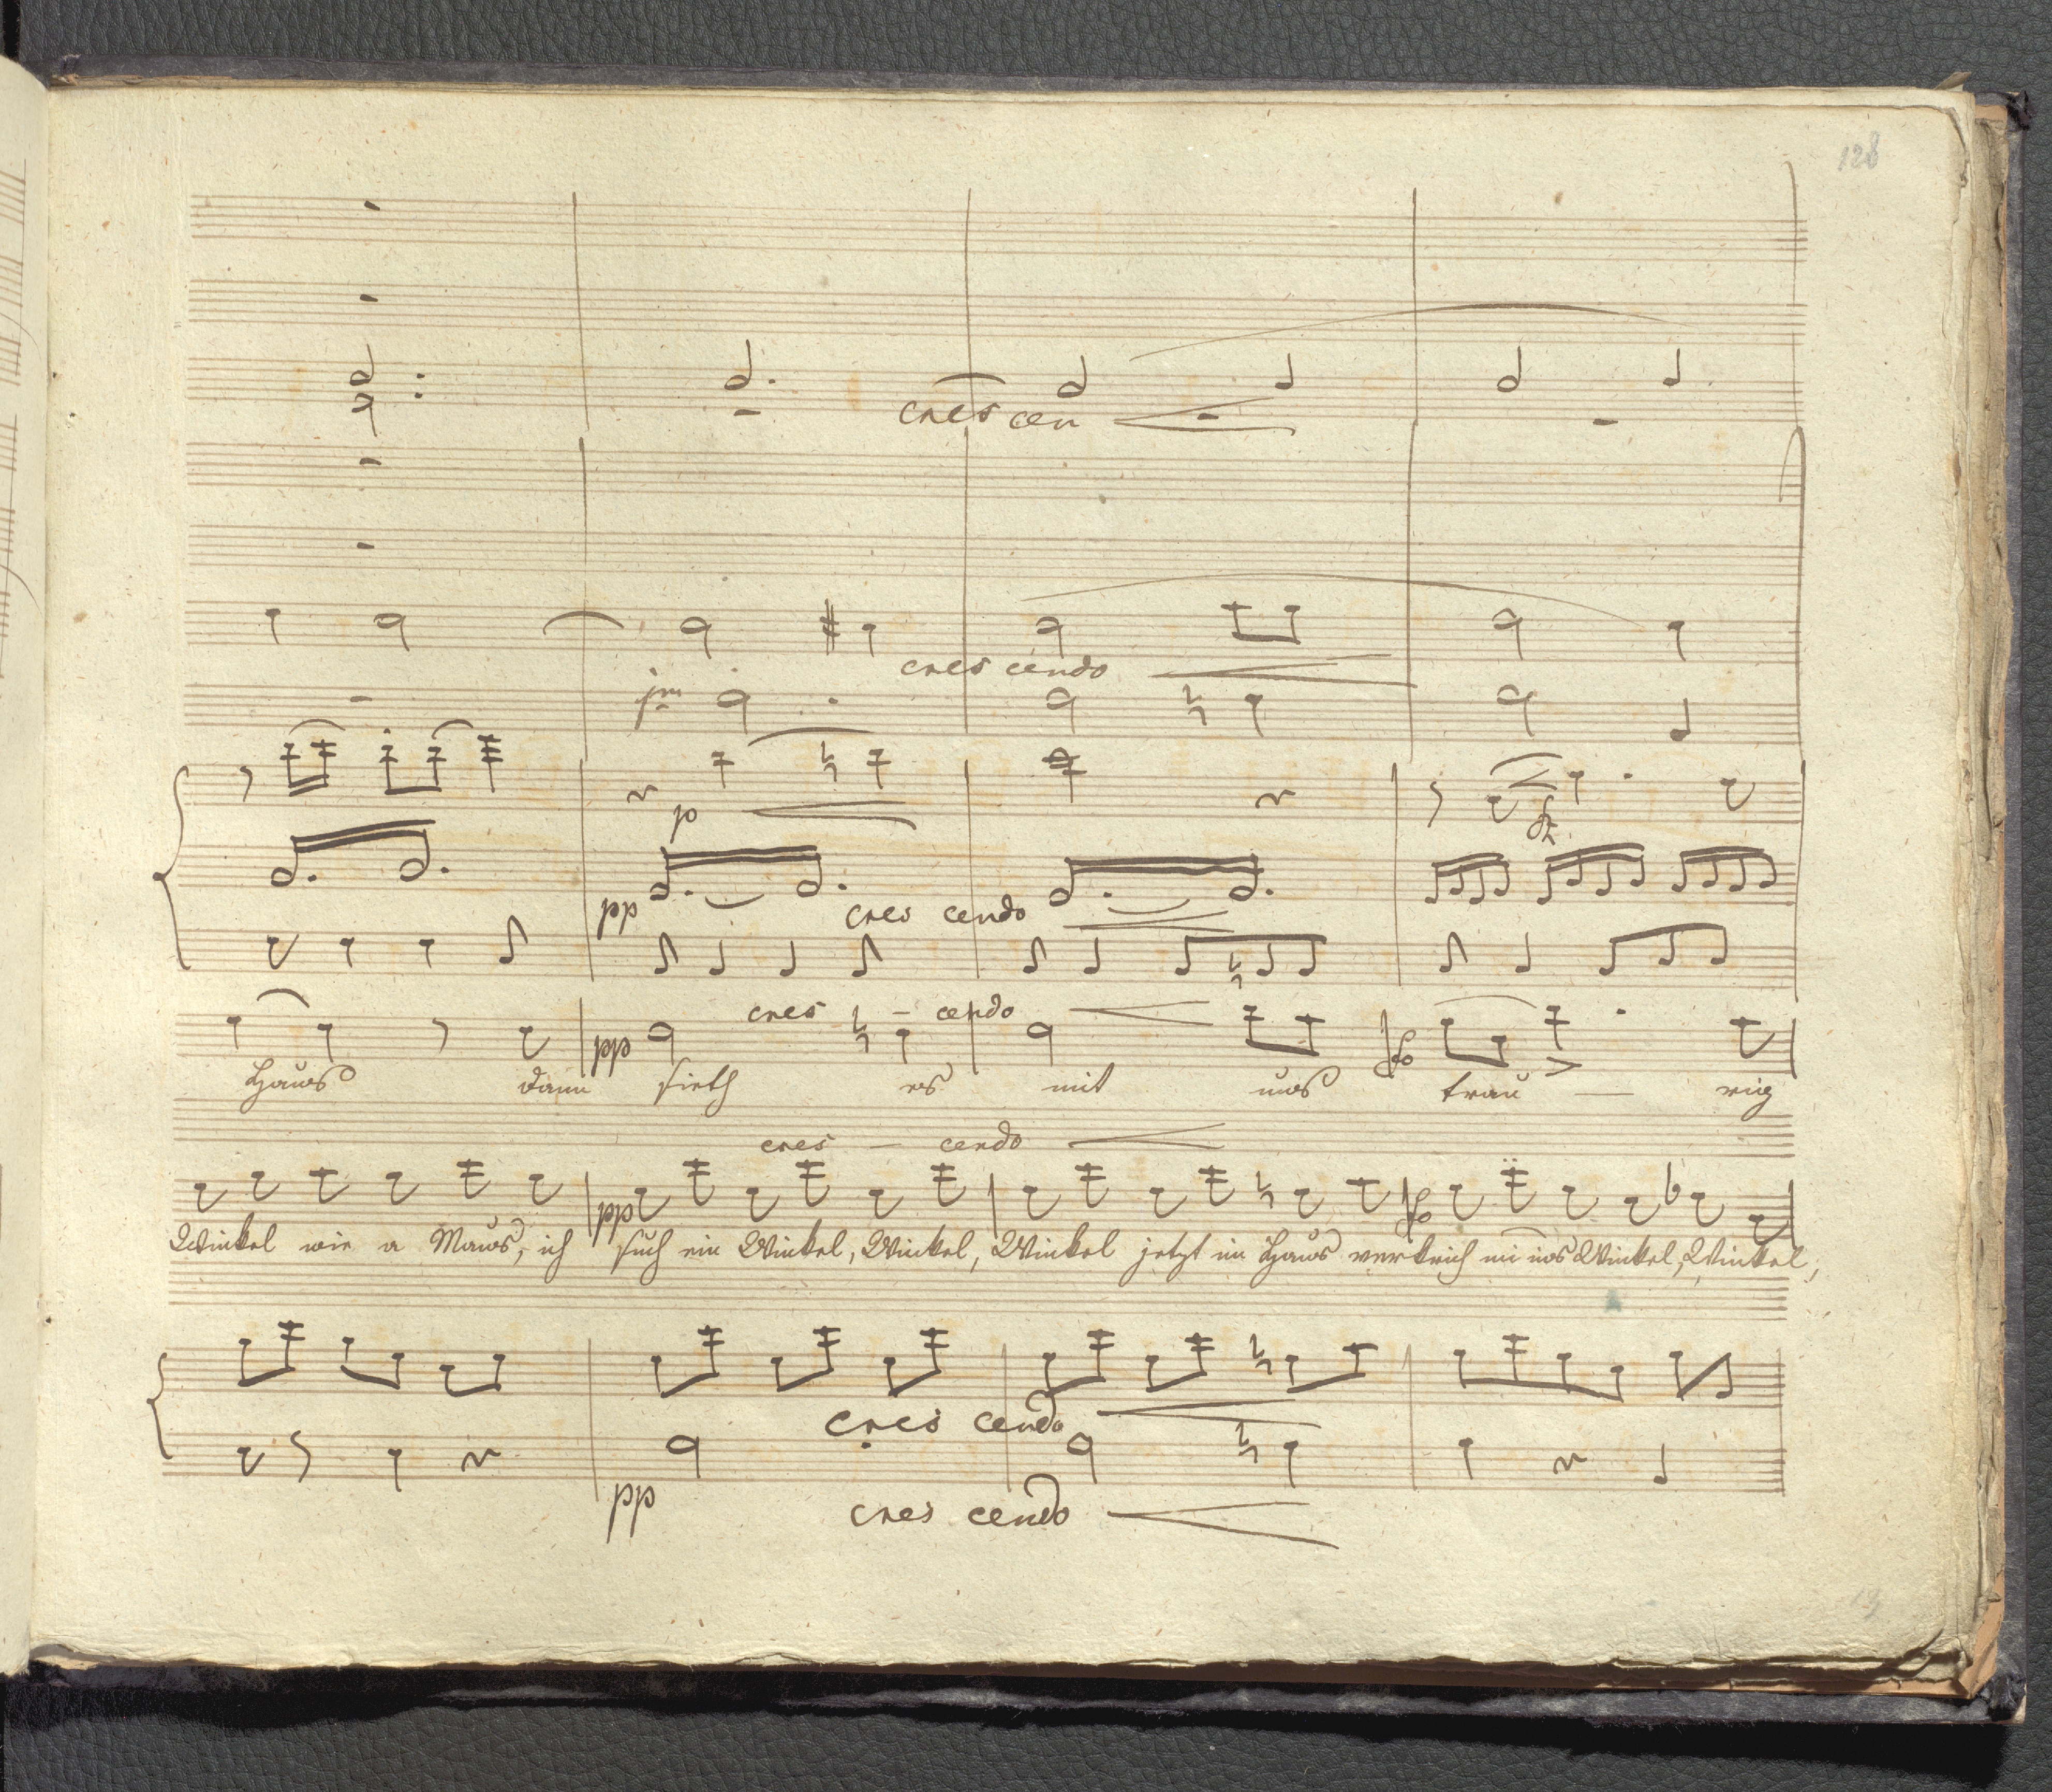 128
crescen
crescendo
p
pp cres cendo
cres - cendo
pp fo
Haus dann sieth es mit uns trau — rig
cres — cendo
pp fo
Winkel wie a Maus, ich such ein Winkel, Winkel, Winkel jetzt im Haus verkriech mi ins Winkel, Winkel,
cres cendo
pp cres cendo